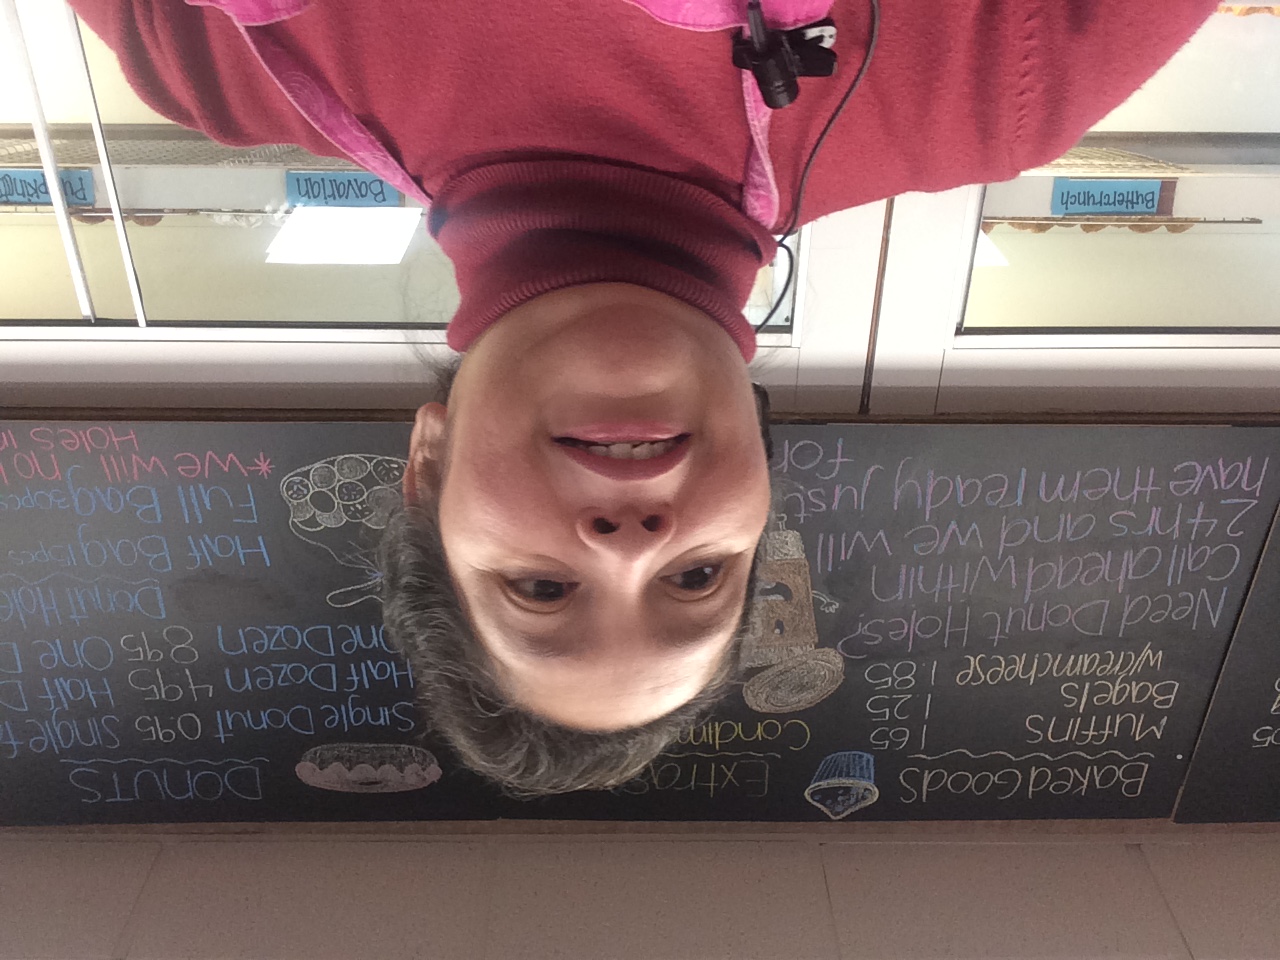 Baked Goods
Muffins 1.65
Bagels 1.25
w/creamcheese 1.85
Need Donut Holes?
Call ahead within
24hrs and we will
have them ready just
for
Extras
DONUTS
Single Donut 0.95 Single
Half Dozen 4.95 Half
One Dozen 8.95 One
Donut
Half Bag 15pcs
Full Bag 30pcs
*We will
Holes
Buttercrunch
Bavarian